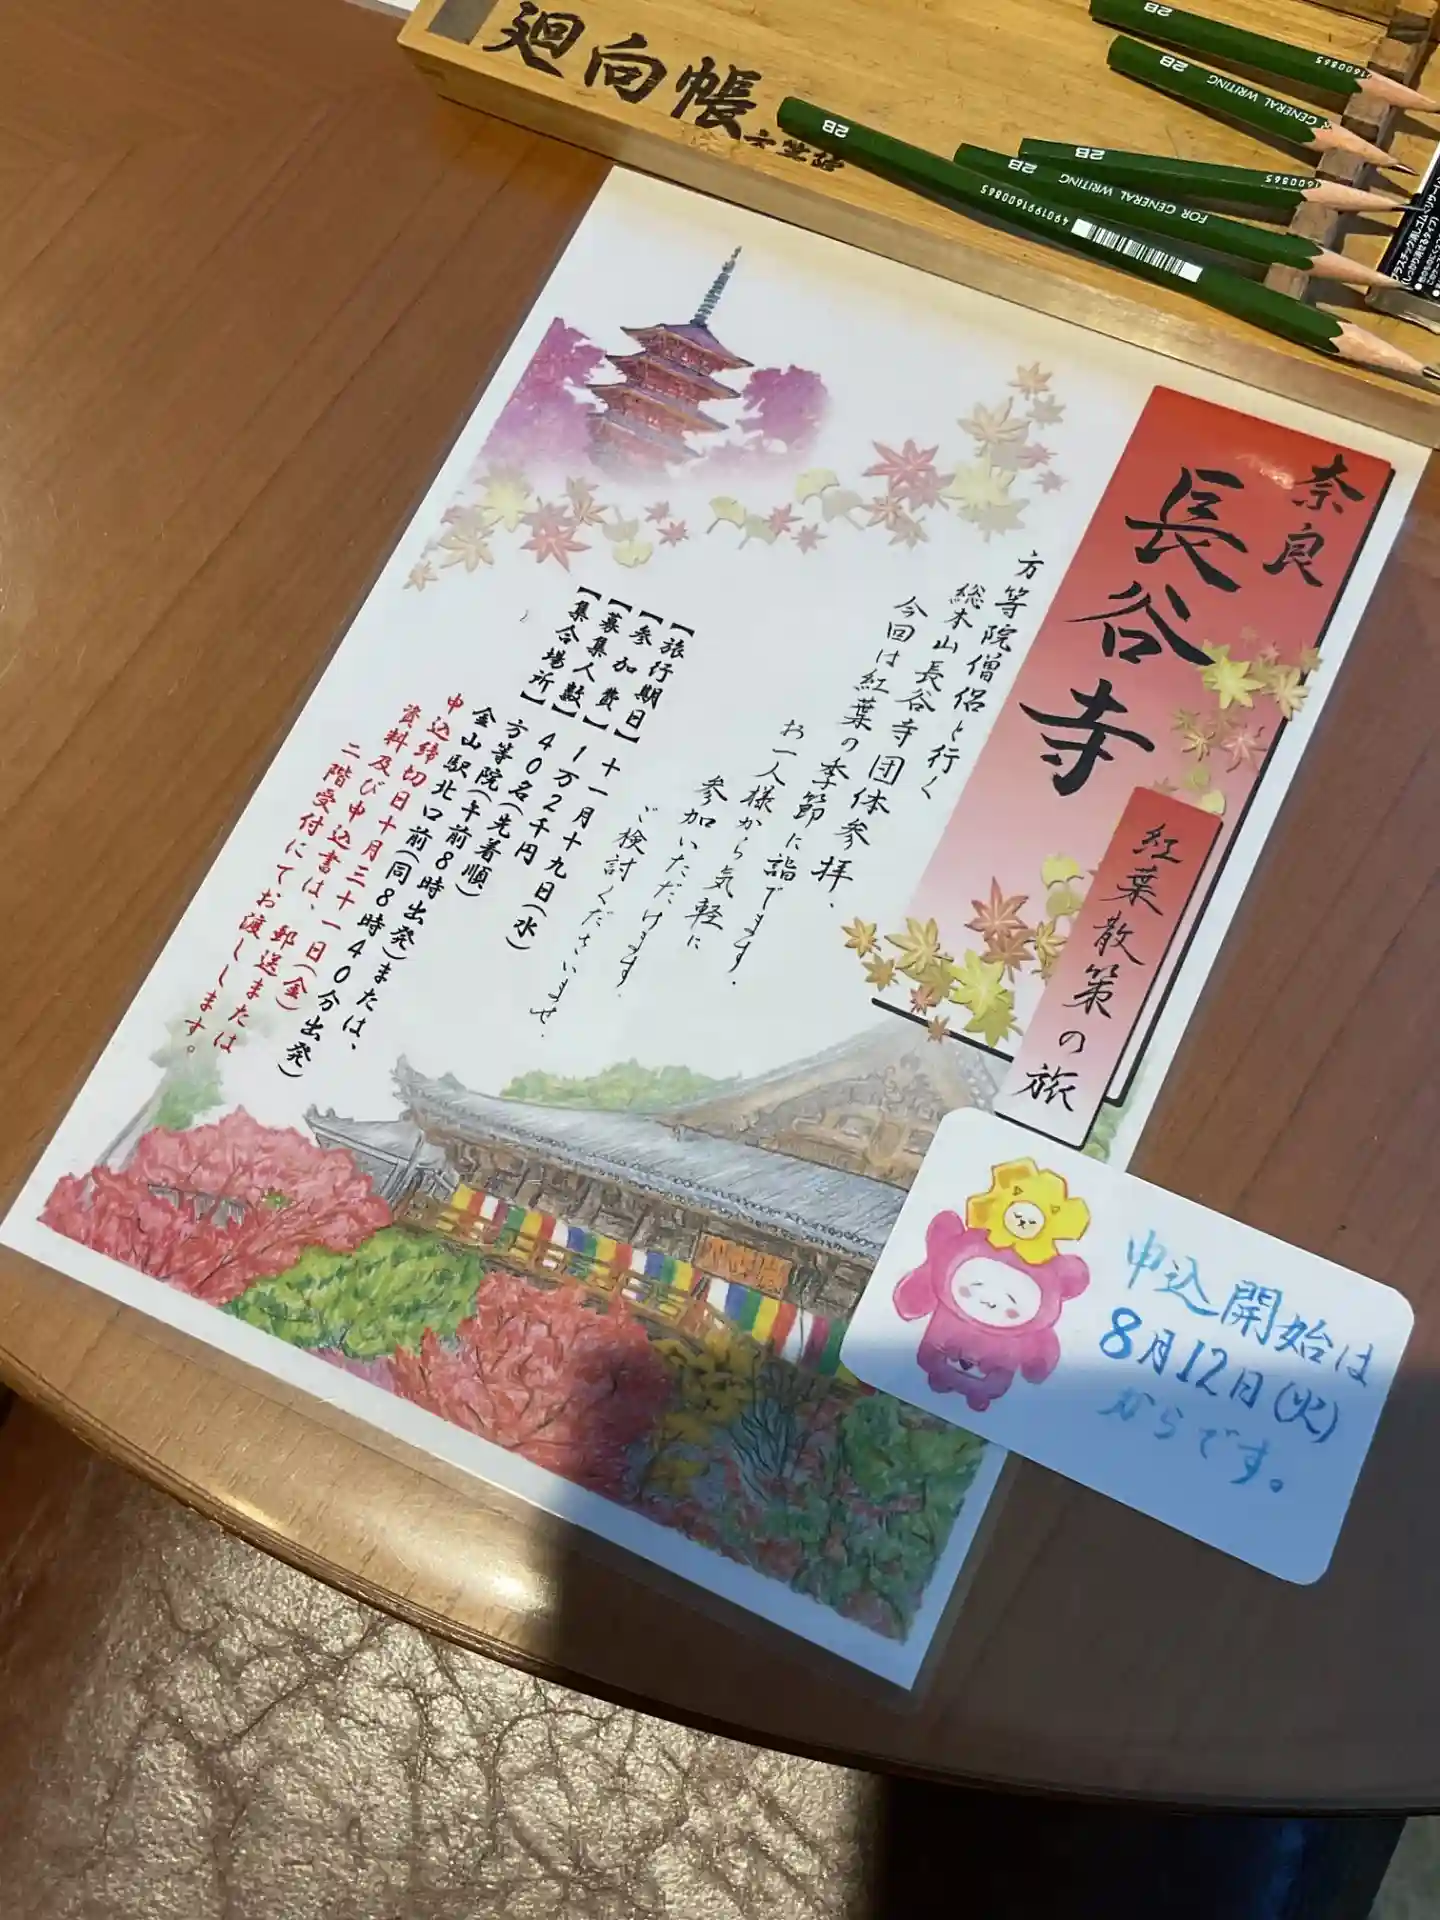 廻向帳
方等院
2B
2B
GENERAL WRITING
1600865
2B
1600865
2B
FOR GENERAL WRITING
2B
4901991600865
プラスチック消しゴム
奈良
長谷寺
紅葉散策の旅
方等院僧侶と行く
総本山長谷寺団体参拝、
今回は紅葉の季節に詣でます。
お一人様から気軽に
参加いただけます。
ご検討くださいませ。
【旅行期日】十一月十九日(水)
【参加費】1万2千円
【募集人数】40名(先着順)
【集合場所】方等院(午前8時出発)または、
金山駅北口前(同8時40分出発)
申込締切日十月三十一日(金)
資料及び申込書は、郵送または
二階受付にてお渡しします。
申込開始は
8月12日(火)
からです。